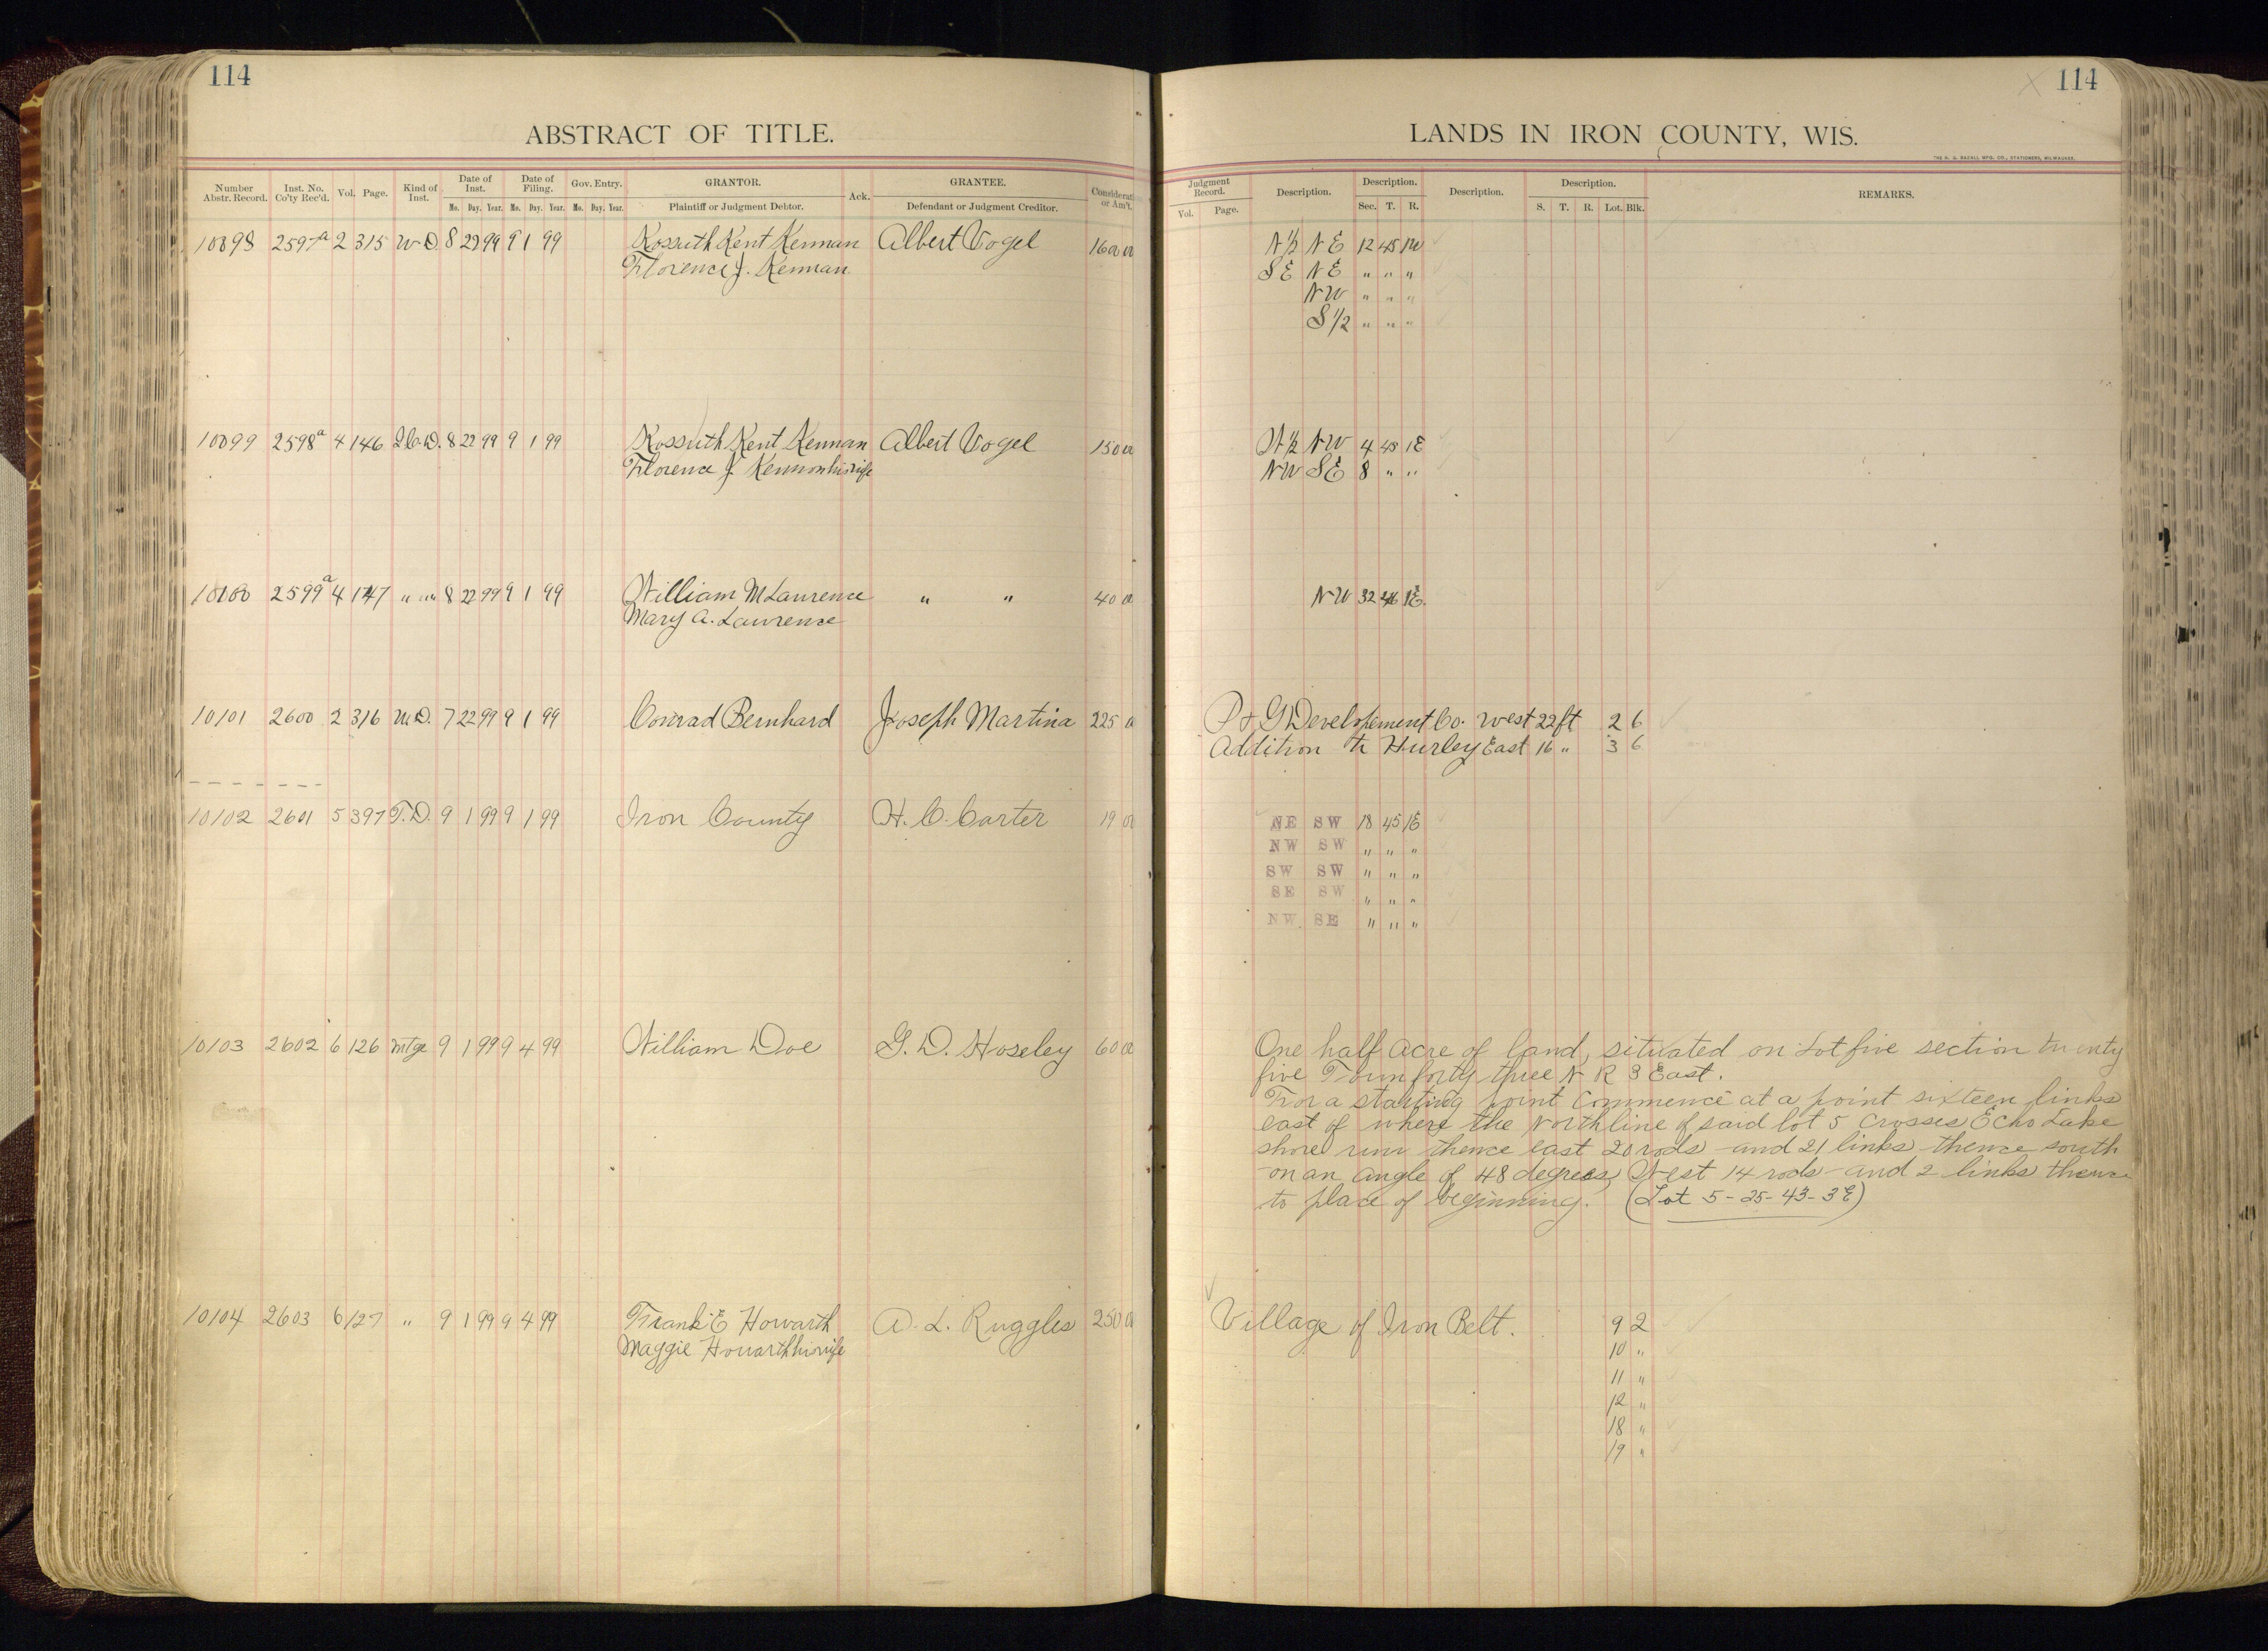 114
114
ABSTRACT OF TITLE.
LANDS IN IRON COUNTY, WIS.
Number Abstr. Record. Inst. No. Co'ty Rec'd. Vol. Page. Kind of Inst. Date of Inst. Date of Filing. Gov. Entry. GRANTOR. Ack. GRANTEE. Considerat or Am't.
Mo. Day. Year. Mo. Day. Year. Mo. Day. Year. Plaintiff or Judgment Debtor. Defendant or Judgment Creditor.
Judgment Record. Description. Description. Description. Description. REMARKS.
Vol. Page. Sec. T. R. S. T. R. Lot. Blk.
10098 2597a 2 315 W.D. 8 22 99 9 1 99 Kossuth Kent Kennan Albert Vogel 160 00 N½ NE 12 45 1W
Florence J. Kennan SE NE " " "
NW " " "
S½ " " "
10099 2598a 4 146 2 C.D. 8 22 99 9 1 99 Kossuth Kent Kennan Albert Vogel 150 00 N½ NW 4 45 1E
Florence J Kennan his wife NW SE 8 " "
10100 2599a 4 147 " " " 8 22 99 9 1 99 William M Lawrence " " 40 00 NW 32 46 1E.
Mary A. Lawrence
10101 2600 2 316 W.D. 7 22 99 9 1 99 Conrad Bernhard Joseph Martina 225 00 P & G Developement Co. West 22 ft 2 6
Addition to Hurley East 16 " 3 6
10102 2601 5 397 T.D. 9 1 99 9 1 99 Iron County H. C. Carter 19 00 NE SW 18 45 1E
NW SW " " "
SW SW " " "
SE SW " " "
NW SE " " "
10103 2602 6 126 Mtge 9 1 99 9 4 99 William Doe G. D. Hoseley 60 00 One half acre of land, situated on Lot five section twenty
five Town forty three N R 3 East.
For a starting point Commence at a point sixteen links
east of where the North line of said lot 5 crosses Echo Lake
shore run thence east 20 rods and 21 links thence south
on an angle of 48 degrees West 14 rods and 2 links thence
to place of beginning. (Lot 5-25-43-3E)
10104 2603 6 127 " 9 1 99 9 4 99 Frank E Howarth A. L. Ruggles 250 00 Village of Iron Belt. 9 2
Maggie Howarth his wife 10 "
11 "
12 "
18 "
19 "